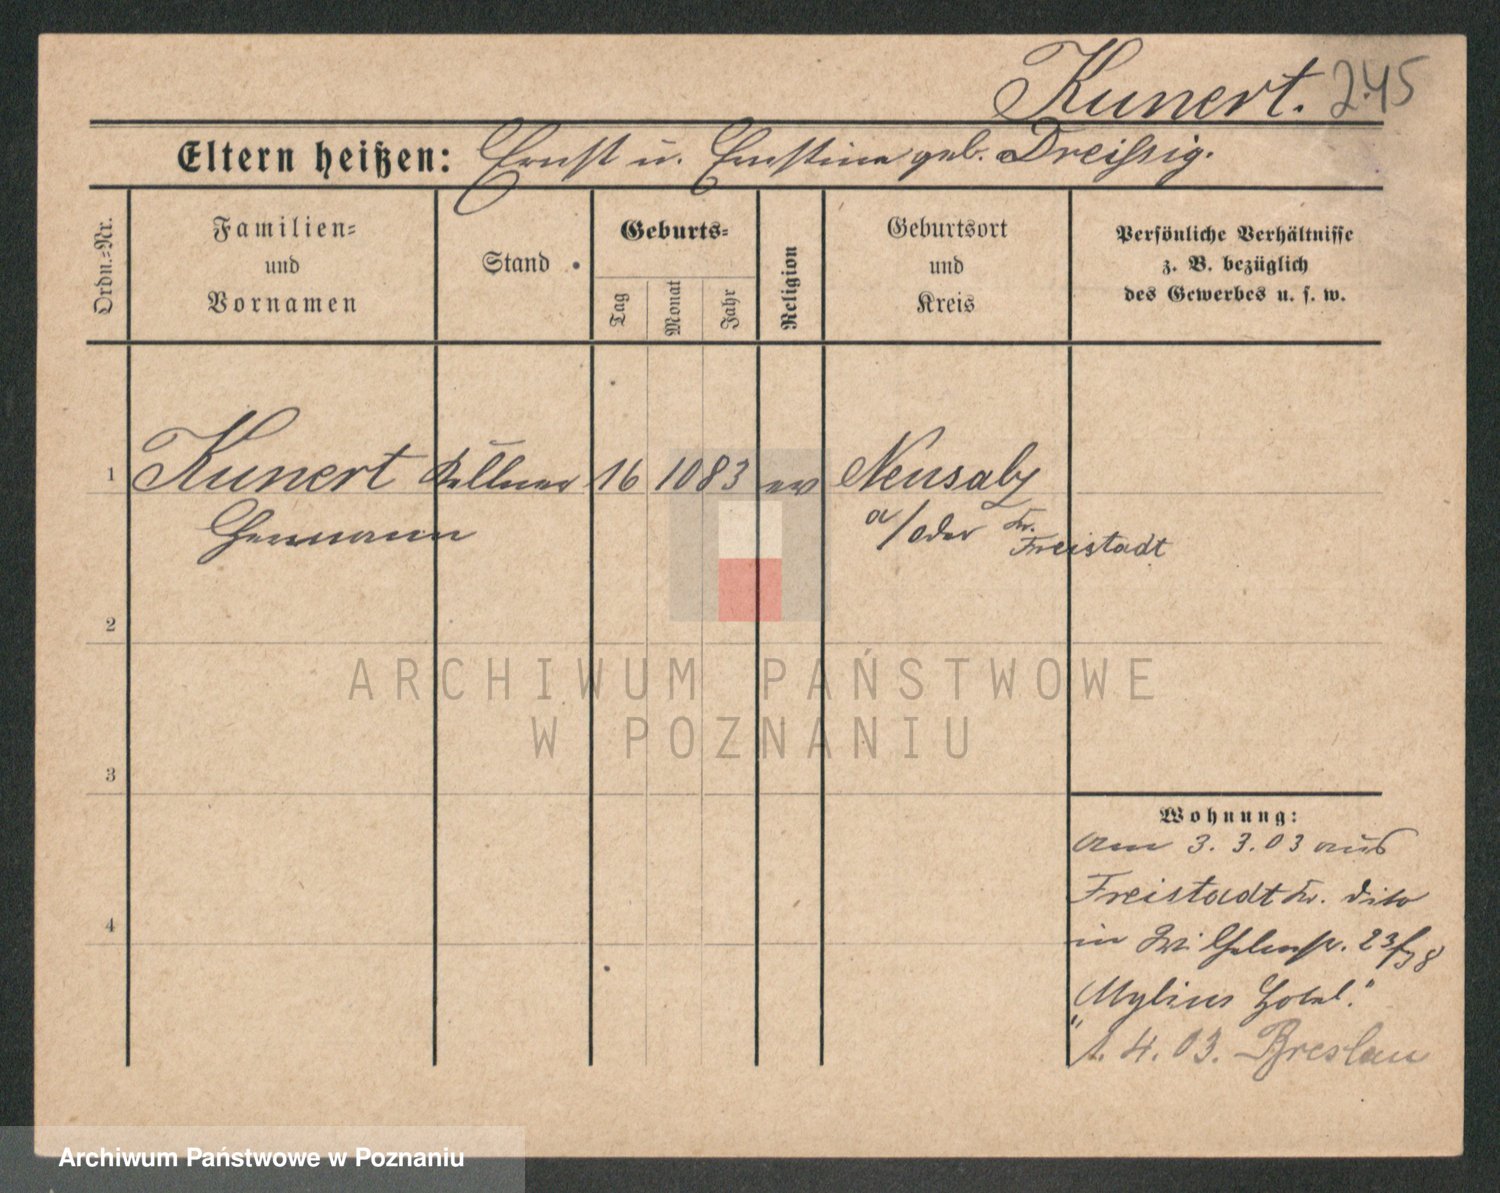 Kunert. 245
Eltern heißen: Ernst u. Ernstine geb. Dreissig.
Ordn.=Nr.
Familien=
und
Vornamen
Stand
Geburts=
Tag
Monat
Jahr
Religion
Geburtsort
und
Kreis
Persönliche Verhältnisse
z. B. bezüglich
des Gewerbes u. s. w.
1 Kunert Kellner 16 10 83 ev Neusalz
Hermann a/oder Kr.
Freistadt
2
3
4
Wohnung:
am 3. 3. 03 aus
Freistadt Kr. dito
in Wilhelmstr. 23
"Mylius Hotel."
1. 4. 03. Breslau
ARCHIWUM PAŃSTWOWE
W POZNANIU
Archiwum Państwowe w Poznaniu